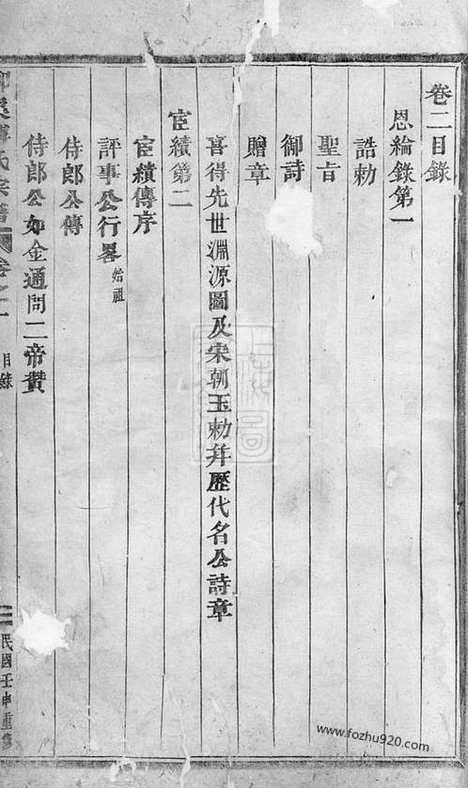 卷二目錄
恩綸錄第一
誥勅
聖旨
御詩
贈章
喜得先世淵源圖及宋朝玉勅幷歷代名公詩章
宦績第二
宦績傳序
評事公行畧 始祖
侍郎公傳
侍郎公如金通問二帝贊
氏宗譜 卷之二 目錄 民國壬申重修
www.fozhu920.com